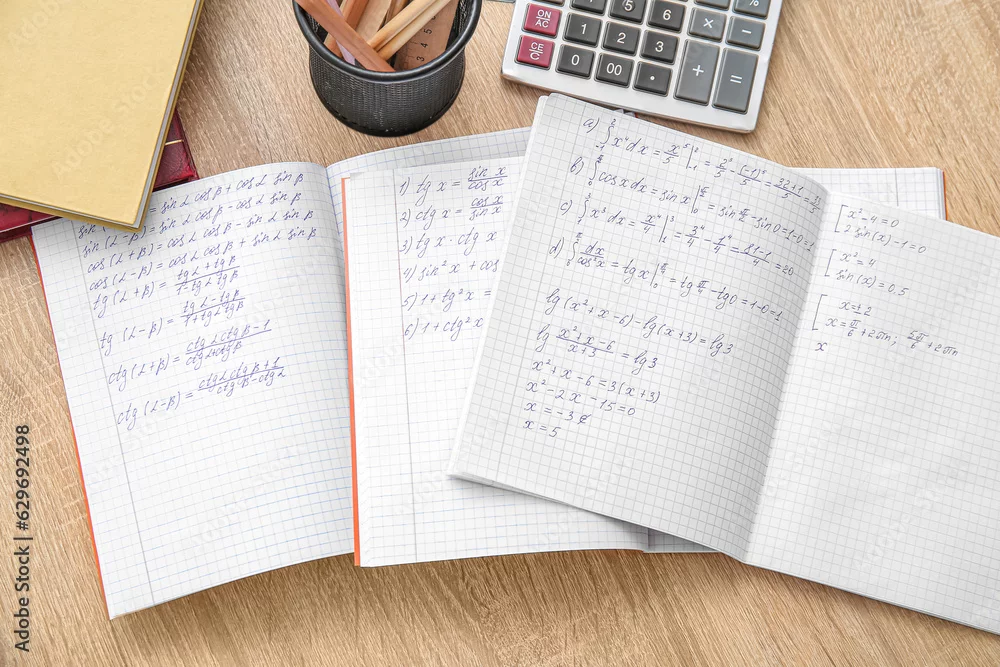 ON
AC
5 6 × %
1 2 3 −
CE
C
0 00 . + =
3 4 5
sin (α-β) = sinα cosβ + cosα sinβ
cos (α+β) = cosα cosβ - sinα sinβ
cos (α-β) = cosα cosβ + sinα sinβ
tg (α+β) = tgα+tgβ / 1-tgα tgβ
tg (α-β) = tgα-tgβ / 1+tgα tgβ
ctg (α+β) = ctgα ctgβ-1 / ctgα+ctgβ
ctg (α-β) = ctgα ctgβ+1 / ctgβ-ctgα
1) tg x = sin x / cos x
2) ctg x = cos x / sin x
3) tg x · ctg x
4) sin² x + cos
5) 1 + tg² x =
6) 1 + ctg² x
a) ∫₋₁² x⁴dx = x⁵/5 |₋₁² = 2⁵/5 - (-1)⁵/5 = 32+1/5 = 33/5
b) cos x dx = sin x = sin - sin 0 = 1-0=1
c) ∫₁³ x³dx = x⁴/4 |₁³ = 3⁴/4 - 1⁴/4 = 81-1/4 = 20
d) ∫₀ dx/cos²x = tg x |₀ = tg π/4 - tg 0 = 1-0=1
lg (x²+x-6) - lg (x+3) = lg 3
lg x²+x-6 / x+3 = lg 3
x²+x-6 = 3(x+3)
x²-2x-15=0
x = -3 ∉
x = 5
[ x²-4=0
2 sin(x)-1=0
[ x²=4
sin(x)=0,5
[ x=±2
x = π/6 + 2πn; 5π/6 + 2πn
x
Adobe Stock | #629692498